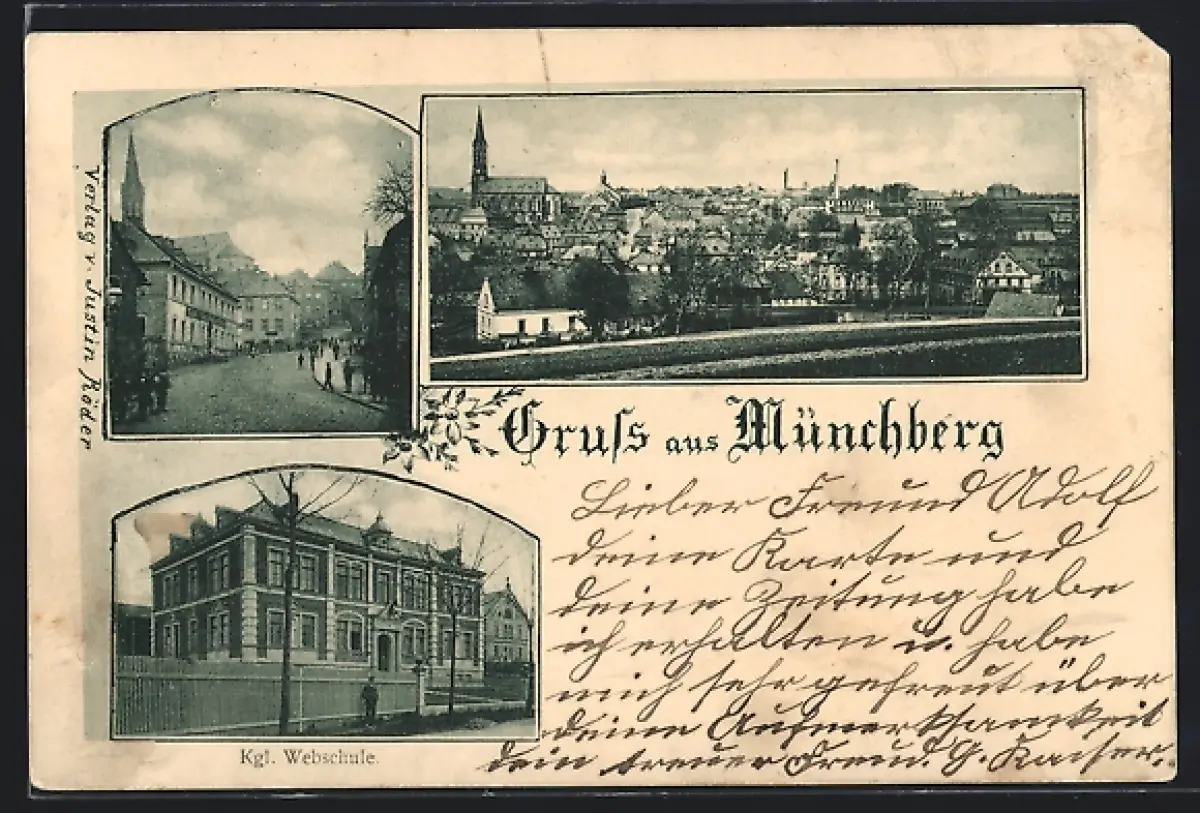 Verlag v. Justin Röder
Gruſs aus Münchberg
Kgl. Webschule.
Lieber Freund Adolf
deine Karte und
deine Zeitung habe
ich erhalten u. habe
mich sehr gefreut über
deine Aufmerksamkeit
dein treuer Freund. G. Kaiser.